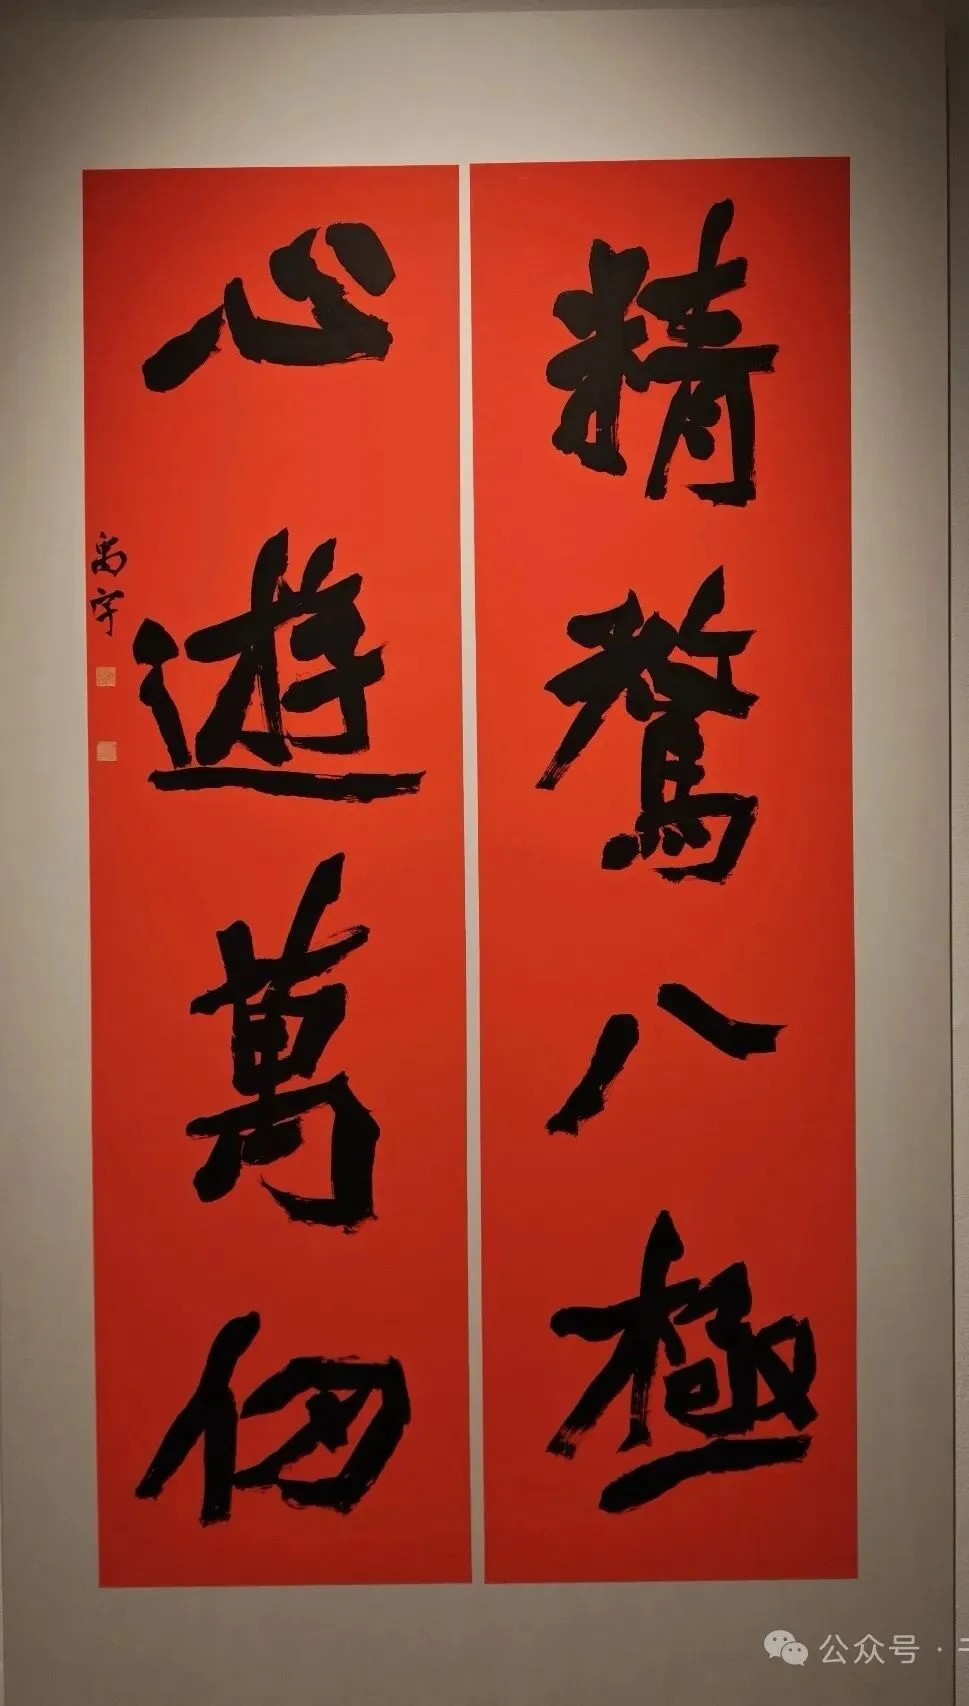 精騖八極
心遊萬仞
禹宇
公众号 ·